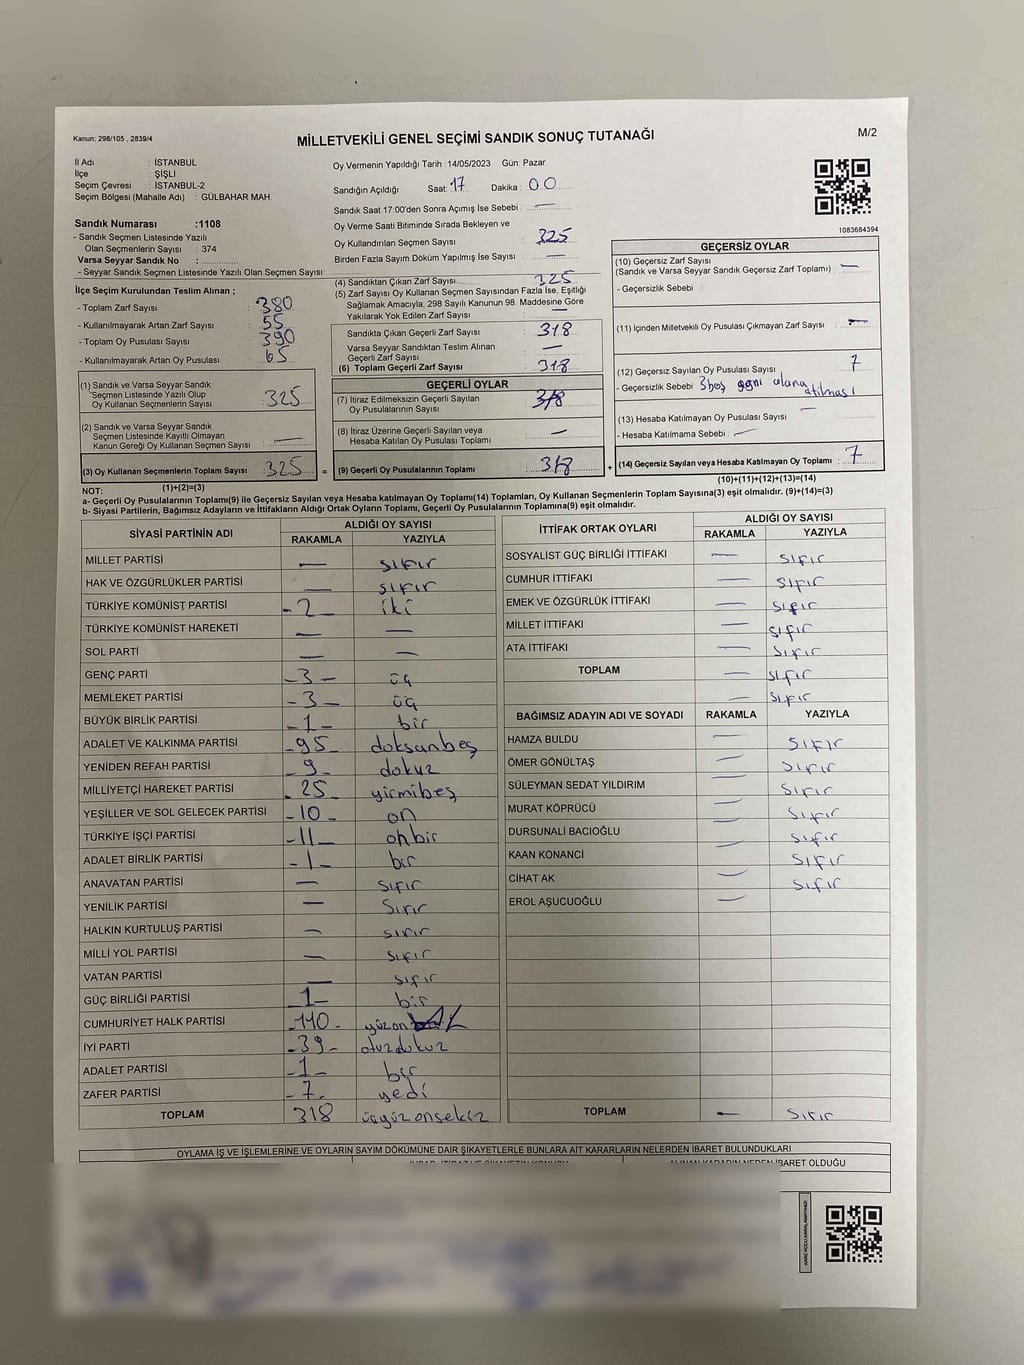 Kanun; 298/105 , 2839/4
MİLLETVEKİLİ GENEL SEÇİMİ SANDIK SONUÇ TUTANAĞI
M/2
İl Adı : İSTANBUL
İlçe : ŞİŞLİ
Seçim Çevresi : İSTANBUL-2
Seçim Bölgesi (Mahalle Adı) : GÜLBAHAR MAH.
Sandık Numarası :1108
- Sandık Seçmen Listesinde Yazılı
Olan Seçmenlerin Sayısı : 374
Varsa Seyyar Sandık No :
- Seyyar Sandık Seçmen Listesinde Yazılı Olan Seçmen Sayısı:
İlçe Seçim Kurulundan Teslim Alınan ;
- Toplam Zarf Sayısı : 380
- Kullanılmayarak Artan Zarf Sayısı : 55
- Toplam Oy Pusulası Sayısı : 390
- Kullanılmayarak Artan Oy Pusulası : 65
(1) Sandık ve Varsa Seyyar Sandık
Seçmen Listesinde Yazılı Olup
Oy Kullanan Seçmenlerin Sayısı : 325
(2) Sandık ve Varsa Seyyar Sandık
Seçmen Listesinde Kayıtlı Olmayan
Kanun Gereği Oy Kullanan Seçmen Sayısı : —
(3) Oy Kullanan Seçmenlerin Toplam Sayısı : 325
(1)+(2)=(3)
Oy Vermenin Yapıldığı Tarih : 14/05/2023 Gün: Pazar
Sandığın Açıldığı Saat: 17 Dakika : 00
Sandık Saat 17:00'den Sonra Açımış İse Sebebi : —
Oy Verme Saati Bitiminde Sırada Bekleyen ve
Oy Kullandırılan Seçmen Sayısı : 325
Birden Fazla Sayım Döküm Yapılmış İse Sayısı : —
(4) Sandıktan Çıkan Zarf Sayısı : 325
(5) Zarf Sayısı Oy Kullanan Seçmen Sayısından Fazla İse, Eşitliği
Sağlamak Amacıyla, 298 Sayılı Kanunun 98. Maddesine Göre
Yakılarak Yok Edilen Zarf Sayısı : —
Sandıkta Çıkan Geçerli Zarf Sayısı : 318
Varsa Seyyar Sandıktan Teslim Alınan
Geçerli Zarf Sayısı : —
(6) Toplam Geçerli Zarf Sayısı : 318
GEÇERLİ OYLAR
(7) İtiraz Edilmeksizin Geçerli Sayılan
Oy Pusulalarının Sayısı : 318
(8) İtiraz Üzerine Geçerli Sayılan veya
Hesaba Katılan Oy Pusulası Toplamı : —
= (9) Geçerli Oy Pusulalarının Toplamı : 318 +
1083684394
GEÇERSİZ OYLAR
(10) Geçersiz Zarf Sayısı
(Sandık ve Varsa Seyyar Sandık Geçersiz Zarf Toplamı) : —
- Geçersizlik Sebebi
(11) İçinden Milletvekili Oy Pusulası Çıkmayan Zarf Sayısı : —
(12) Geçersiz Sayılan Oy Pusulası Sayısı : 7
- Geçersizlik Sebebi 3 boş
(13) Hesaba Katılmayan Oy Pusulası Sayısı : —
- Hesaba Katılmama Sebebi : —
(14) Geçersiz Sayılan veya Hesaba Katılmayan Oy Toplamı : 7
(10)+(11)+(12)+(13)=(14)
NOT:
a- Geçerli Oy Pusulalarının Toplamı(9) ile Geçersiz Sayılan veya Hesaba katılmayan Oy Toplamı(14) Toplamları, Oy Kullanan Seçmenlerin Toplam Sayısına(3) eşit olmalıdır. (9)+(14)=(3)
b- Siyasi Partilerin, Bağımsız Adayların ve İttifakların Aldığı Ortak Oyların Toplamı, Geçerli Oy Pusulalarının Toplamına(9) eşit olmalıdır.
SİYASİ PARTİNİN ADI ALDIĞI OY SAYISI
RAKAMLA YAZIYLA
MİLLET PARTİSİ — sıfır
HAK VE ÖZGÜRLÜKLER PARTİSİ — sıfır
TÜRKİYE KOMÜNİST PARTİSİ -2- iki
TÜRKİYE KOMÜNİST HAREKETİ — —
SOL PARTİ — —
GENÇ PARTİ -3- üç
MEMLEKET PARTİSİ -3- üç
BÜYÜK BİRLİK PARTİSİ -1- bir
ADALET VE KALKINMA PARTİSİ -95- doksanbeş
YENİDEN REFAH PARTİSİ -9- dokuz
MİLLİYETÇİ HAREKET PARTİSİ -25- yirmibeş
YEŞİLLER VE SOL GELECEK PARTİSİ -10- on
TÜRKİYE İŞÇİ PARTİSİ -11- onbir
ADALET BİRLİK PARTİSİ -1- bir
ANAVATAN PARTİSİ — sıfır
YENİLİK PARTİSİ — sıfır
HALKIN KURTULUŞ PARTİSİ — sıfır
MİLLİ YOL PARTİSİ — sıfır
VATAN PARTİSİ — sıfır
GÜÇ BİRLİĞİ PARTİSİ -1- bir
CUMHURİYET HALK PARTİSİ -110- yüzon
İYİ PARTİ -39- otuzdokuz
ADALET PARTİSİ -1- bir
ZAFER PARTİSİ -7- yedi
TOPLAM 318 üçyüzonsekiz
İTTİFAK ORTAK OYLARI ALDIĞI OY SAYISI
RAKAMLA YAZIYLA
SOSYALİST GÜÇ BİRLİĞİ İTTİFAKI — sıfır
CUMHUR İTTİFAKI — sıfır
EMEK VE ÖZGÜRLÜK İTTİFAKI — sıfır
MİLLET İTTİFAKI — sıfır
ATA İTTİFAKI — sıfır
TOPLAM — sıfır
— sıfır
BAĞIMSIZ ADAYIN ADI VE SOYADI RAKAMLA YAZIYLA
HAMZA BULDU — sıfır
ÖMER GÖNÜLTAŞ — sıfır
SÜLEYMAN SEDAT YILDIRIM — sıfır
MURAT KÖPRÜCÜ — sıfır
DURSUNALİ BACIOĞLU — sıfır
KAAN KONANCİ — sıfır
CİHAT AK — sıfır
EROL AŞUCUOĞLU —
TOPLAM — sıfır
OYLAMA İŞ VE İŞLEMLERİNE VE OYLARIN SAYIM DÖKÜMÜNE DAİR ŞİKAYETLERLE BUNLARA AİT KARARLARIN NELERDEN İBARET BULUNDUKLARI
ALINAN KARARIN NEDEN İBARET OLDUĞU